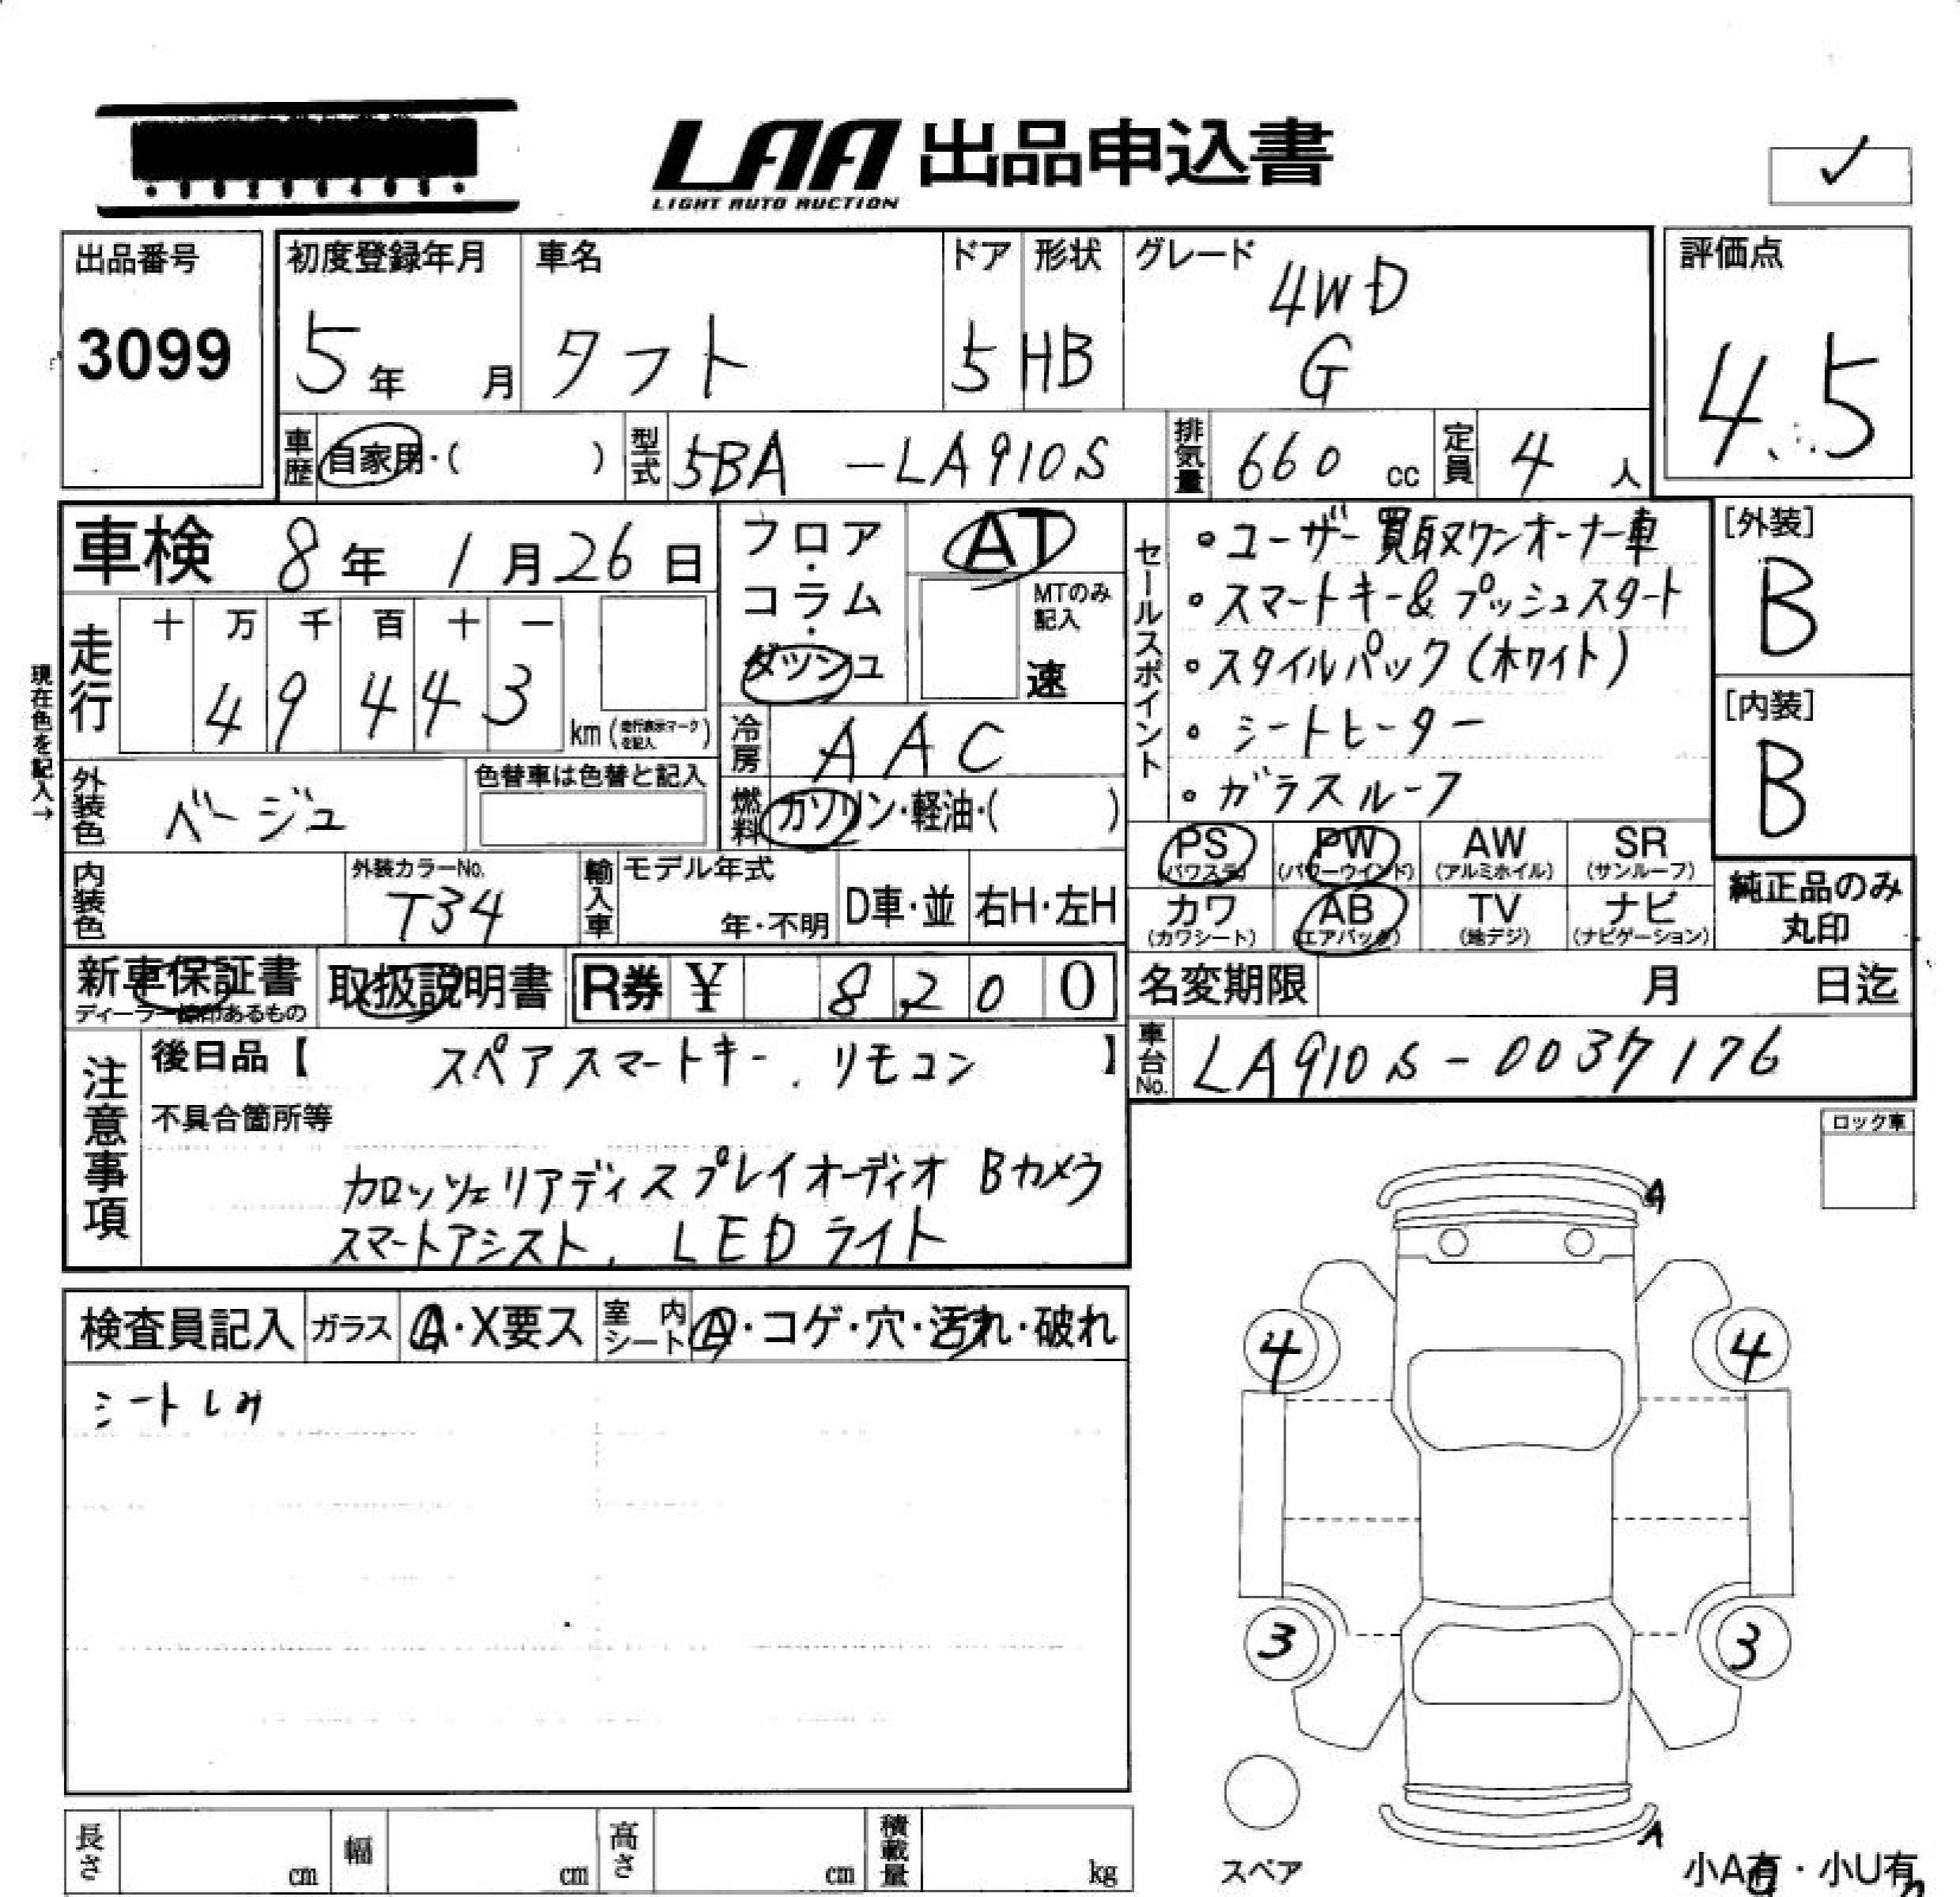 LAA 出品申込書
LIGHT AUTO AUCTION
✓
出品番号
3099
初度登録年月
5年 月
車名
タフト
ドア
5
形状
HB
グレード
4WD
G
評価点
4.5
車歴 自家用・( )
型式 5BA -LA910S
排気量 660 cc
定員 4 人
車検 8年 1月26日
現在色を記入→
走行
十 万 千 百 十 一
4 9 4 4 3
km(走行表示マークを記入)
フロア・コラム・ダッシュ
AT
MTのみ記入
速
冷房 AAC
燃料 ガソリン・軽油・( )
セールスポイント
・ユーザー買取ワンオーナー車
・スマートキー&プッシュスタート
・スタイルパック(ホワイト)
・シートヒーター
・ガラスルーフ
[外装]
B
[内装]
B
外装色 ベージュ
色替車は色替と記入
内装色
外装カラーNo.
T34
輸入車
モデル年式
年・不明
D車・並
右H・左H
PS (パワステ)
PW (パワーウインド)
AW (アルミホイル)
SR (サンルーフ)
カワ (カワシート)
AB (エアバック)
TV (地デジ)
ナビ (ナビゲーション)
純正品のみ
丸印
新車保証書
ディーラー捺印あるもの
取扱説明書
R券 ¥ 8,200
名変期限 月 日迄
車台No. LA910S-0037176
注意事項
後日品【 スペアスマートキー. リモコン 】
不具合箇所等
カロッツェリアディスプレイオーディオ Bカメラ
スマートアシスト, LEDライト
ロック車
検査員記入
ガラス A・X要ス
室内シート A・コゲ・穴・汚れ・破れ
シートしみ
A
4
4
3
3
A
スペア
小A有・小U有
長さ cm
幅 cm
高さ cm
積載量 kg